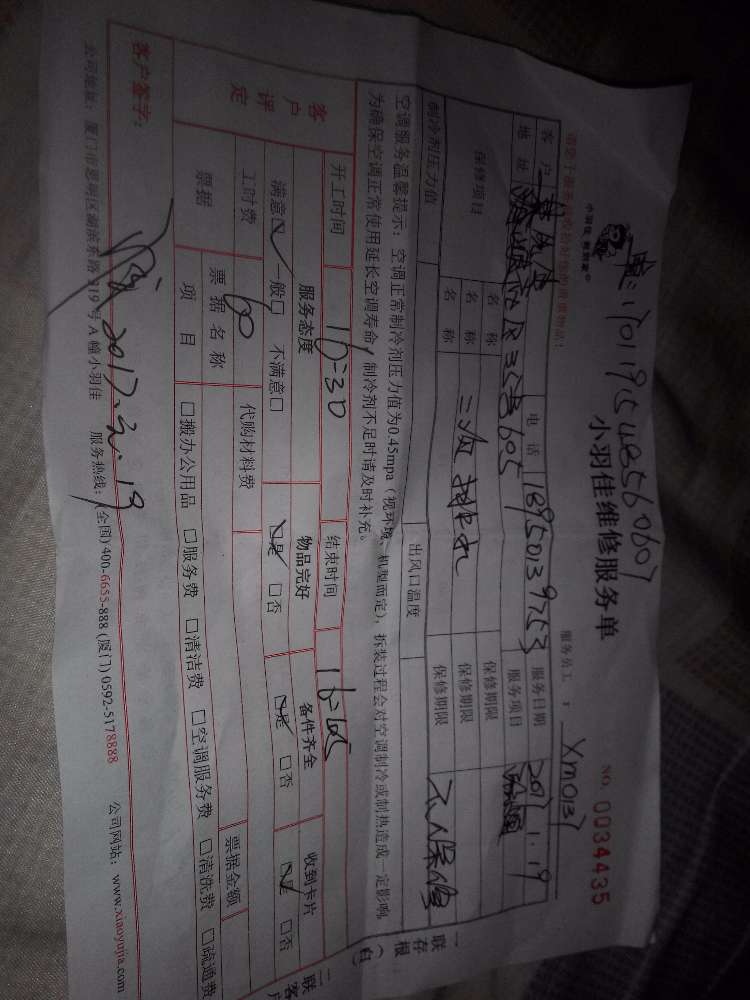 小羽佳维修服务单
NO. 0034435
小羽佳 伴到家®
单:170119548560607
服务员工: XM0137
客户 电话 18950039753 服务日期 2017.1.19
地址 605 服务项目
保修项目 名称 二须排水 保修期限 不保修
名称 保修期限
制冷剂压力值 出风口温度
空调服务温馨提示:空调正常制冷剂压力值为0.45mpa(视环境、机型而定),拆装过程会对空调制冷或制热造成一定影响,
为确保空调正常使用延长空调寿命,制冷剂不足时请及时补充。
开工时间 16:30 结束时间
客户评定 服务态度 物品完好 备件齐全 收到卡片
满意☑ 一般□ 不满意□ ☑是 □否 ☑是 □否 ☑是 □否
工时费 60 代购材料费
票据 票据名称 票据金额
项目 □搬办公用品 □服务费 □清洁费 □空调服务费 □清洗费 □疏通费
客户签字: 2017.
公司地址:厦门市思明区湖滨东路319号A幢小羽佳 服务热线:(全国)400-6655-888 (厦门)0592-5178888 公司网站:www.xiaoyujia.com
一联存根(白)
二联客户